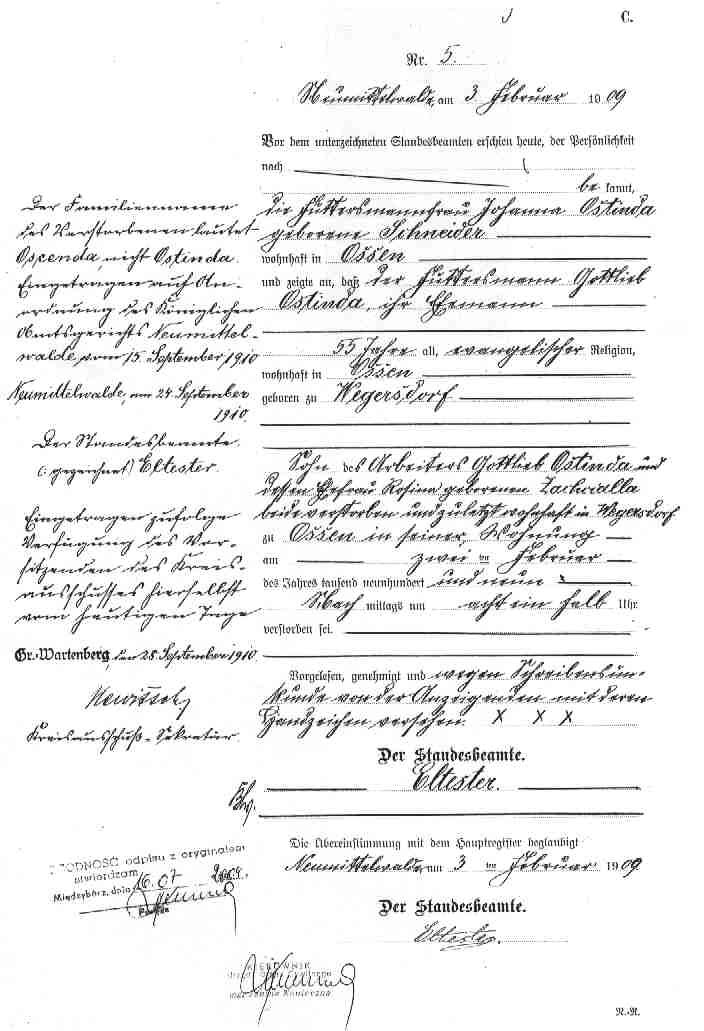 C.
Nr. 5.
Neumittelwalde, am 3 Februar 1909
Vor dem unterzeichneten Standesbeamten erschien heute, der Persönlichkeit
nach
be kannt,
die Häuslermannfrau Johanna Ostinda
geborene Schneider
wohnhaft in Ossen
und zeigte an, daß der Gottlieb
Ostinda, ihr Ehemann
55 Jahre alt, evangelischer Religion,
wohnhaft in Ossen
geboren zu Wegersdorf
Sohn des Arbeiters Gottlieb Ostinda und
dessen Ehefrau Rosina geborenen
beide verstorben und zuletzt wohnhaft in Wegersdorf
zu Ossen in seiner Wohnung
am zwei ten Februar
des Jahres tausend neunhundert und neun
Nach mittags um acht ein halb Uhr
verstorben sei.
Vorgelesen, genehmigt und wegen Schreibensun-
kunde von der Anzeigenden mit deren
Handzeichen versehen. X X X
Der Standesbeamte.
Eltester.
Die Übereinstimmung mit dem Hauptregister beglaubigt
Neumittelwalde, am 3 ten Februar 1909
Der Standesbeamte.
Eltester.
Der Familienname
des Verstorbenen lautet
Oscenda, nicht Ostinda.
Eingetragen auf An-
ordnung des Königlichen
Amtsgerichts Neumittel-
walde, vom 15. September 1910
Neumittelwalde, am 24. September
1910.
Der Standesbeamte.
(: gezeichnet) Eltester.
Eingetragen zufolge
Verfügung des Vor-
sitzenden des Kreis-
ausschusses hierselbst
vom heutigen Tage
Gr.-Wartenberg, den 28. September 1910
Kreisausschuß-Sekretär.
ZGODNOŚĆ odpisu z oryginałem
stwierdzam
Międzybórz, dnia 16.07
KIEROWNIK
R.-R.